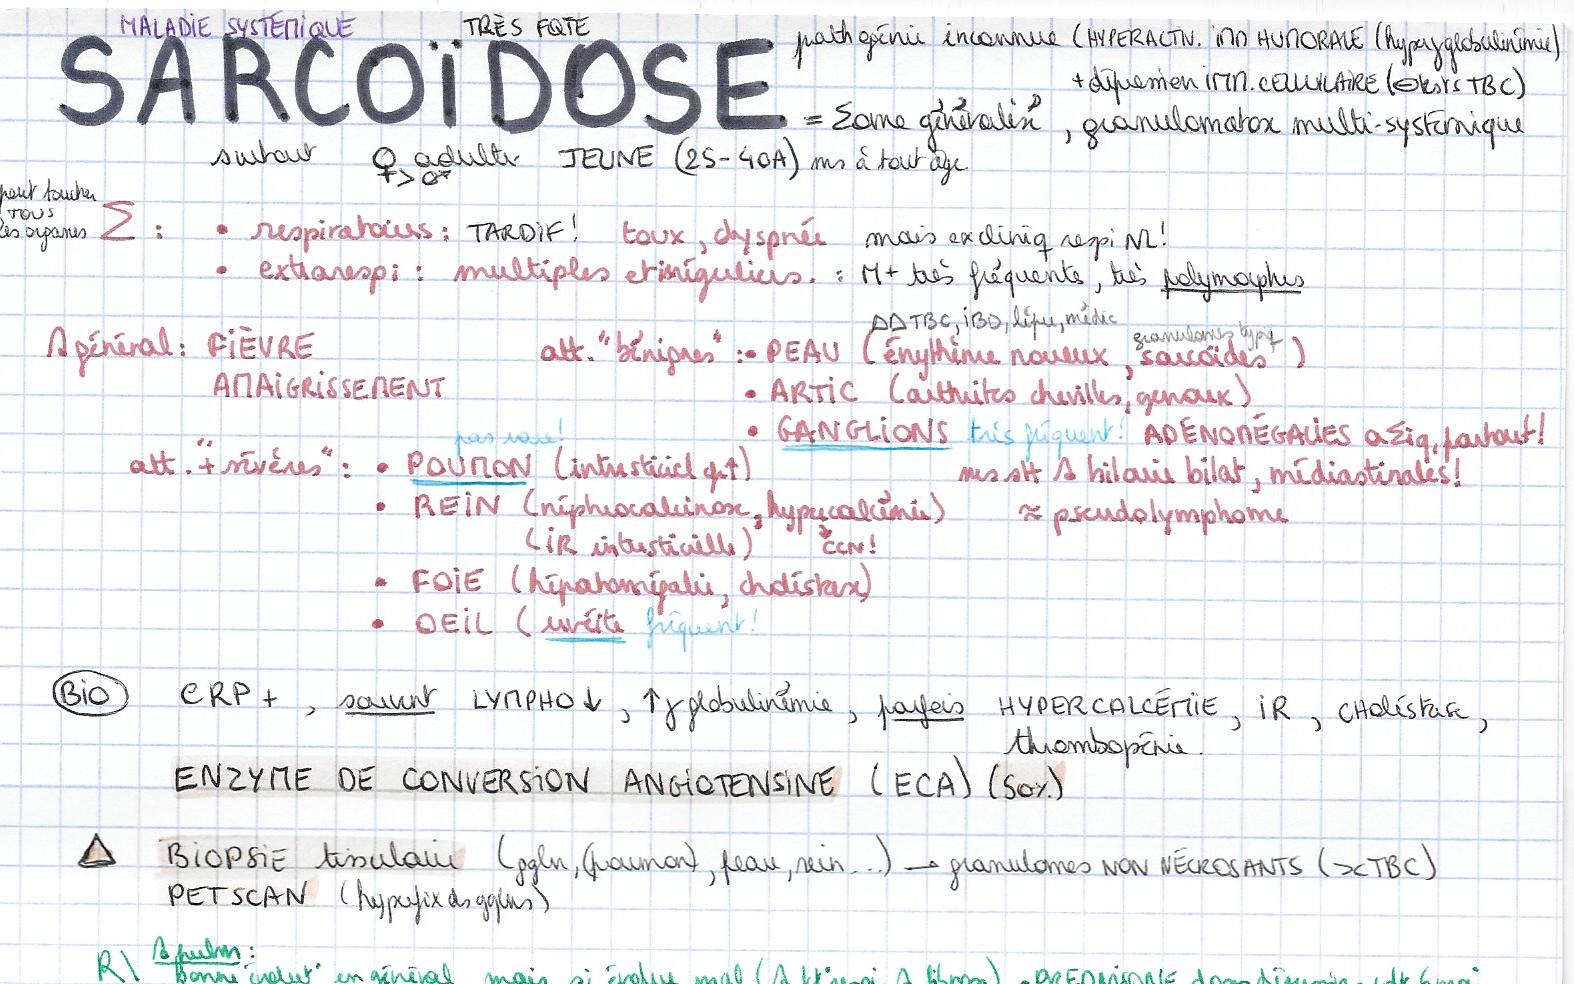 MALADIE SYSTÉMIQUE TRÈS FQTE
SARCOÏDOSE
pathogénie inconnue (HYPERACTIV. IMM HUMORALE (hyperγglobulinémie)
+ dépression IMM. CELLULAIRE (⊖ tests TBC)
= Σome généralisé, granulomatose multi-systémique
surtout ♀ adulte JEUNE (25-40A) ms à tout âge.
♀>♂
peut toucher
TOUS
les organes
Σ : • respiratoires : TARDIF! toux, dyspnée mais ex cliniq respi NL!
• extrarespi : multiples et irréguliers. : M+ très fréquente, très polymorphes
ΔΔ TBC, IBD, lèpre, médic
granulomes typq
Δ général : FIÈVRE
AMAIGRISSEMENT
att. "bénignes" : • PEAU (érythème noueux, sarcoïdes)
• ARTIC (arthrites chevilles, genoux)
• GANGLIONS très fréquent! ADÉNOMÉGALIES aΣiq, partout!
ms stt Δ hilaire bilat, médiastinales!
≈ pseudolymphome
pas rare!
att. "+ sévères" : • POUMON (interstitiel qq↑)
• REIN (néphrocalcinose, hypercalcémie)
(IR interstitielle) CCN!
• FOIE (hépatomégalie, cholestase)
• OEIL (uvéite fréquent!
BIO CRP+, souvent LYMPHO↓, ↑γglobulinémie, parfois HYPERCALCÉMIE, IR, CHOLestase,
thrombopénie.
ENZYME DE CONVERSION ANGIOTENSINE (ECA) (50%)
Δ BIOPSIE tissulaire (ggln, (poumon), peau, rein...) → granulomes NON NÉCROSANTS (>< TBC)
PETSCAN (hyperfix ds gglns)
R\ Δ pulm :
bonne évolut° en général mais si évolue mal